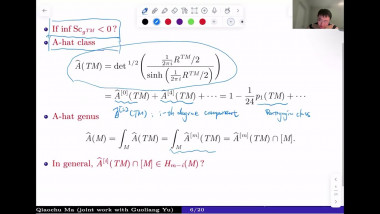 • If inf Sc_{g^{TM}} < 0 ?
• A-hat class
Â(TM) = det^{1/2} ( \frac{\frac{1}{2πi} R^{TM}/2}{sinh ( \frac{1}{2πi} R^{TM}/2 )} )
= Â^{[0]}(TM) + Â^{[4]}(TM) + ··· = 1 − \frac{1}{24} p₁(TM) + ···
Â^{[i]}(TM), i-th degree component Pontryagin class
• A-hat genus
Â(M) = ∫_M Â(TM) = ∫_M Â^{[m]}(TM) = Â^{[m]}(TM) ∩ [M].
• In general, Â^{[i]}(TM) ∩ [M] ∈ H_{m−i}(M) ?
Qiaochu Ma (joint work with Guoliang Yu) 6/20